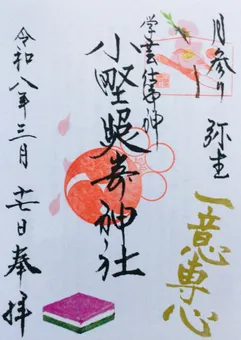 月参り 弥生
一意専心
学芸仕事神
小野照崎神社
令和八年三月
十七日奉拝